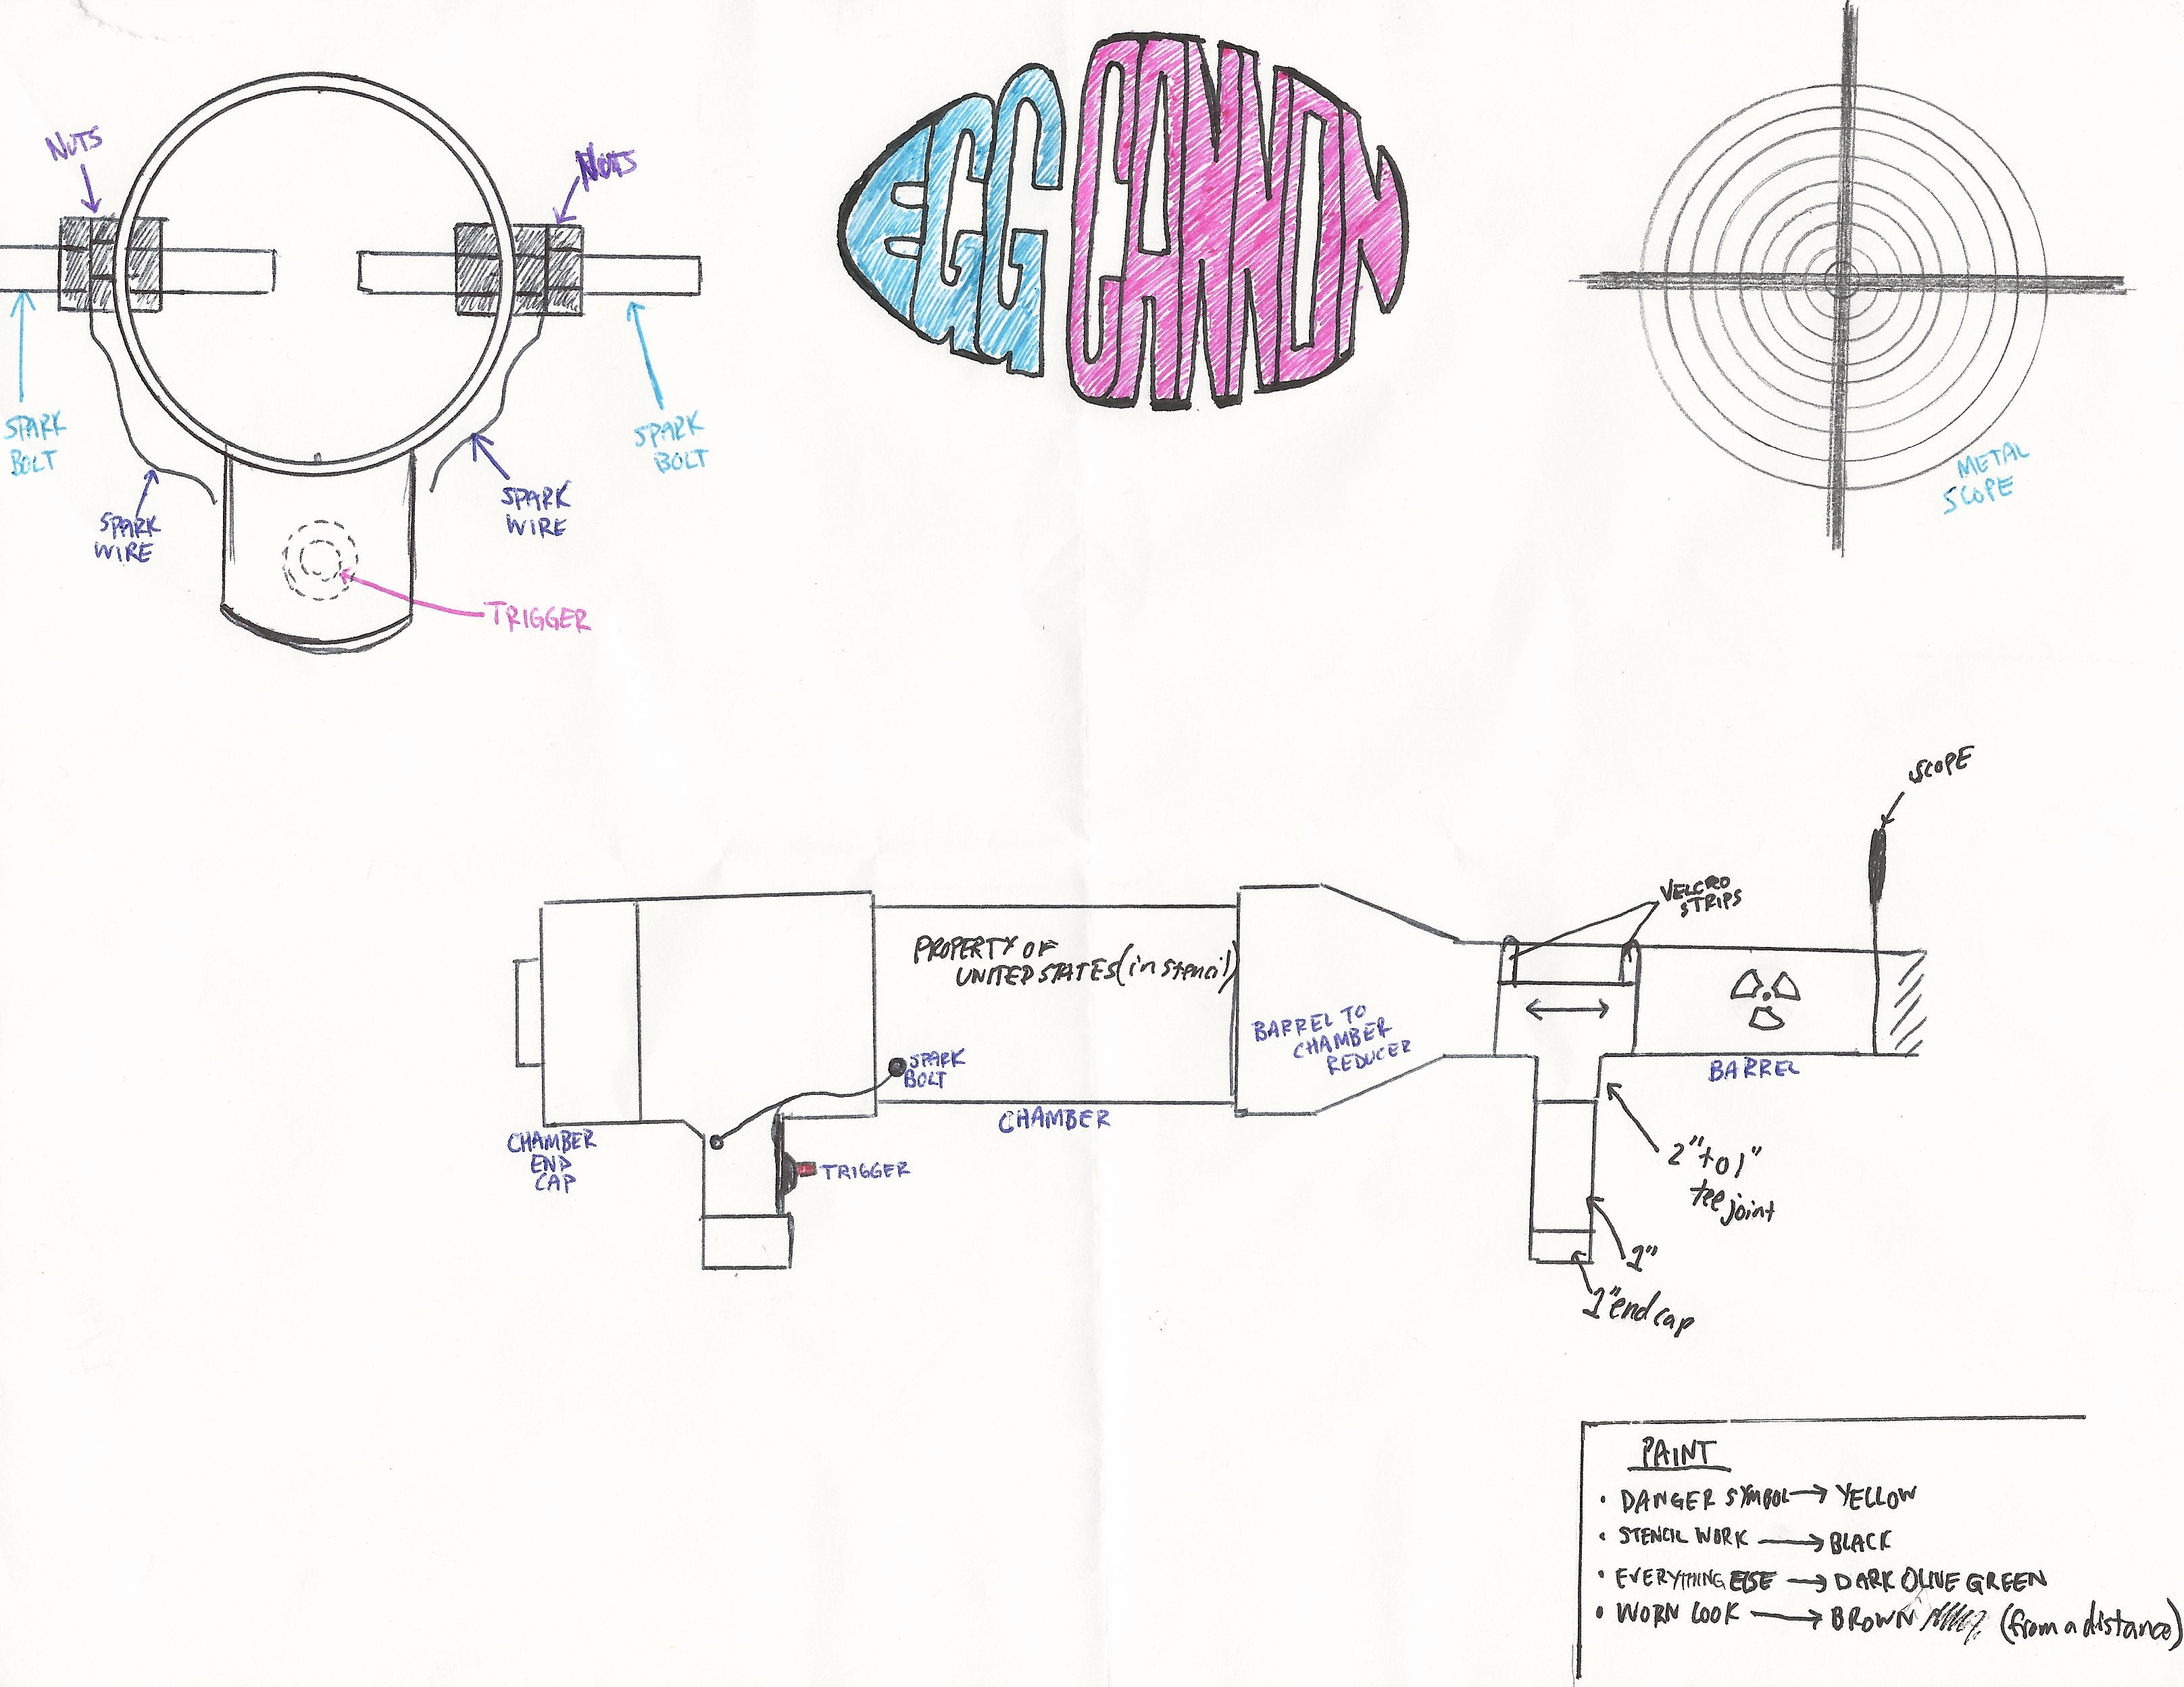 EGG CANNON
NUTS
NUTS
SPARK
BOLT
SPARK
BOLT
SPARK
WIRE
SPARK
WIRE
TRIGGER
METAL
SCOPE
SCOPE
VELCRO
STRIPS
PROPERTY OF
UNITED STATES (in stencil)
BARREL TO
CHAMBER
REDUCER
SPARK
BOLT
BARREL
CHAMBER
CHAMBER
END
CAP
TRIGGER
2" to 1"
tee joint
1"
1" end cap
PAINT
• DANGER SYMBOL → YELLOW
• STENCIL WORK → BLACK
• EVERYTHING ELSE → DARK OLIVE GREEN
• WORN LOOK → BROWN (from a distance)